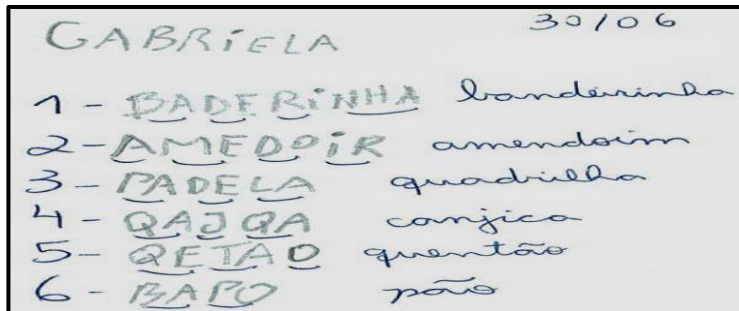 GABRIELA 30/06
1 - BADERINHA bandeirinha
2 - AMEDOIR amendoim
3 - PADELA quadrilha
4 - QAJQA canjica
5 - QETAO quentão
6 - BAPO pão